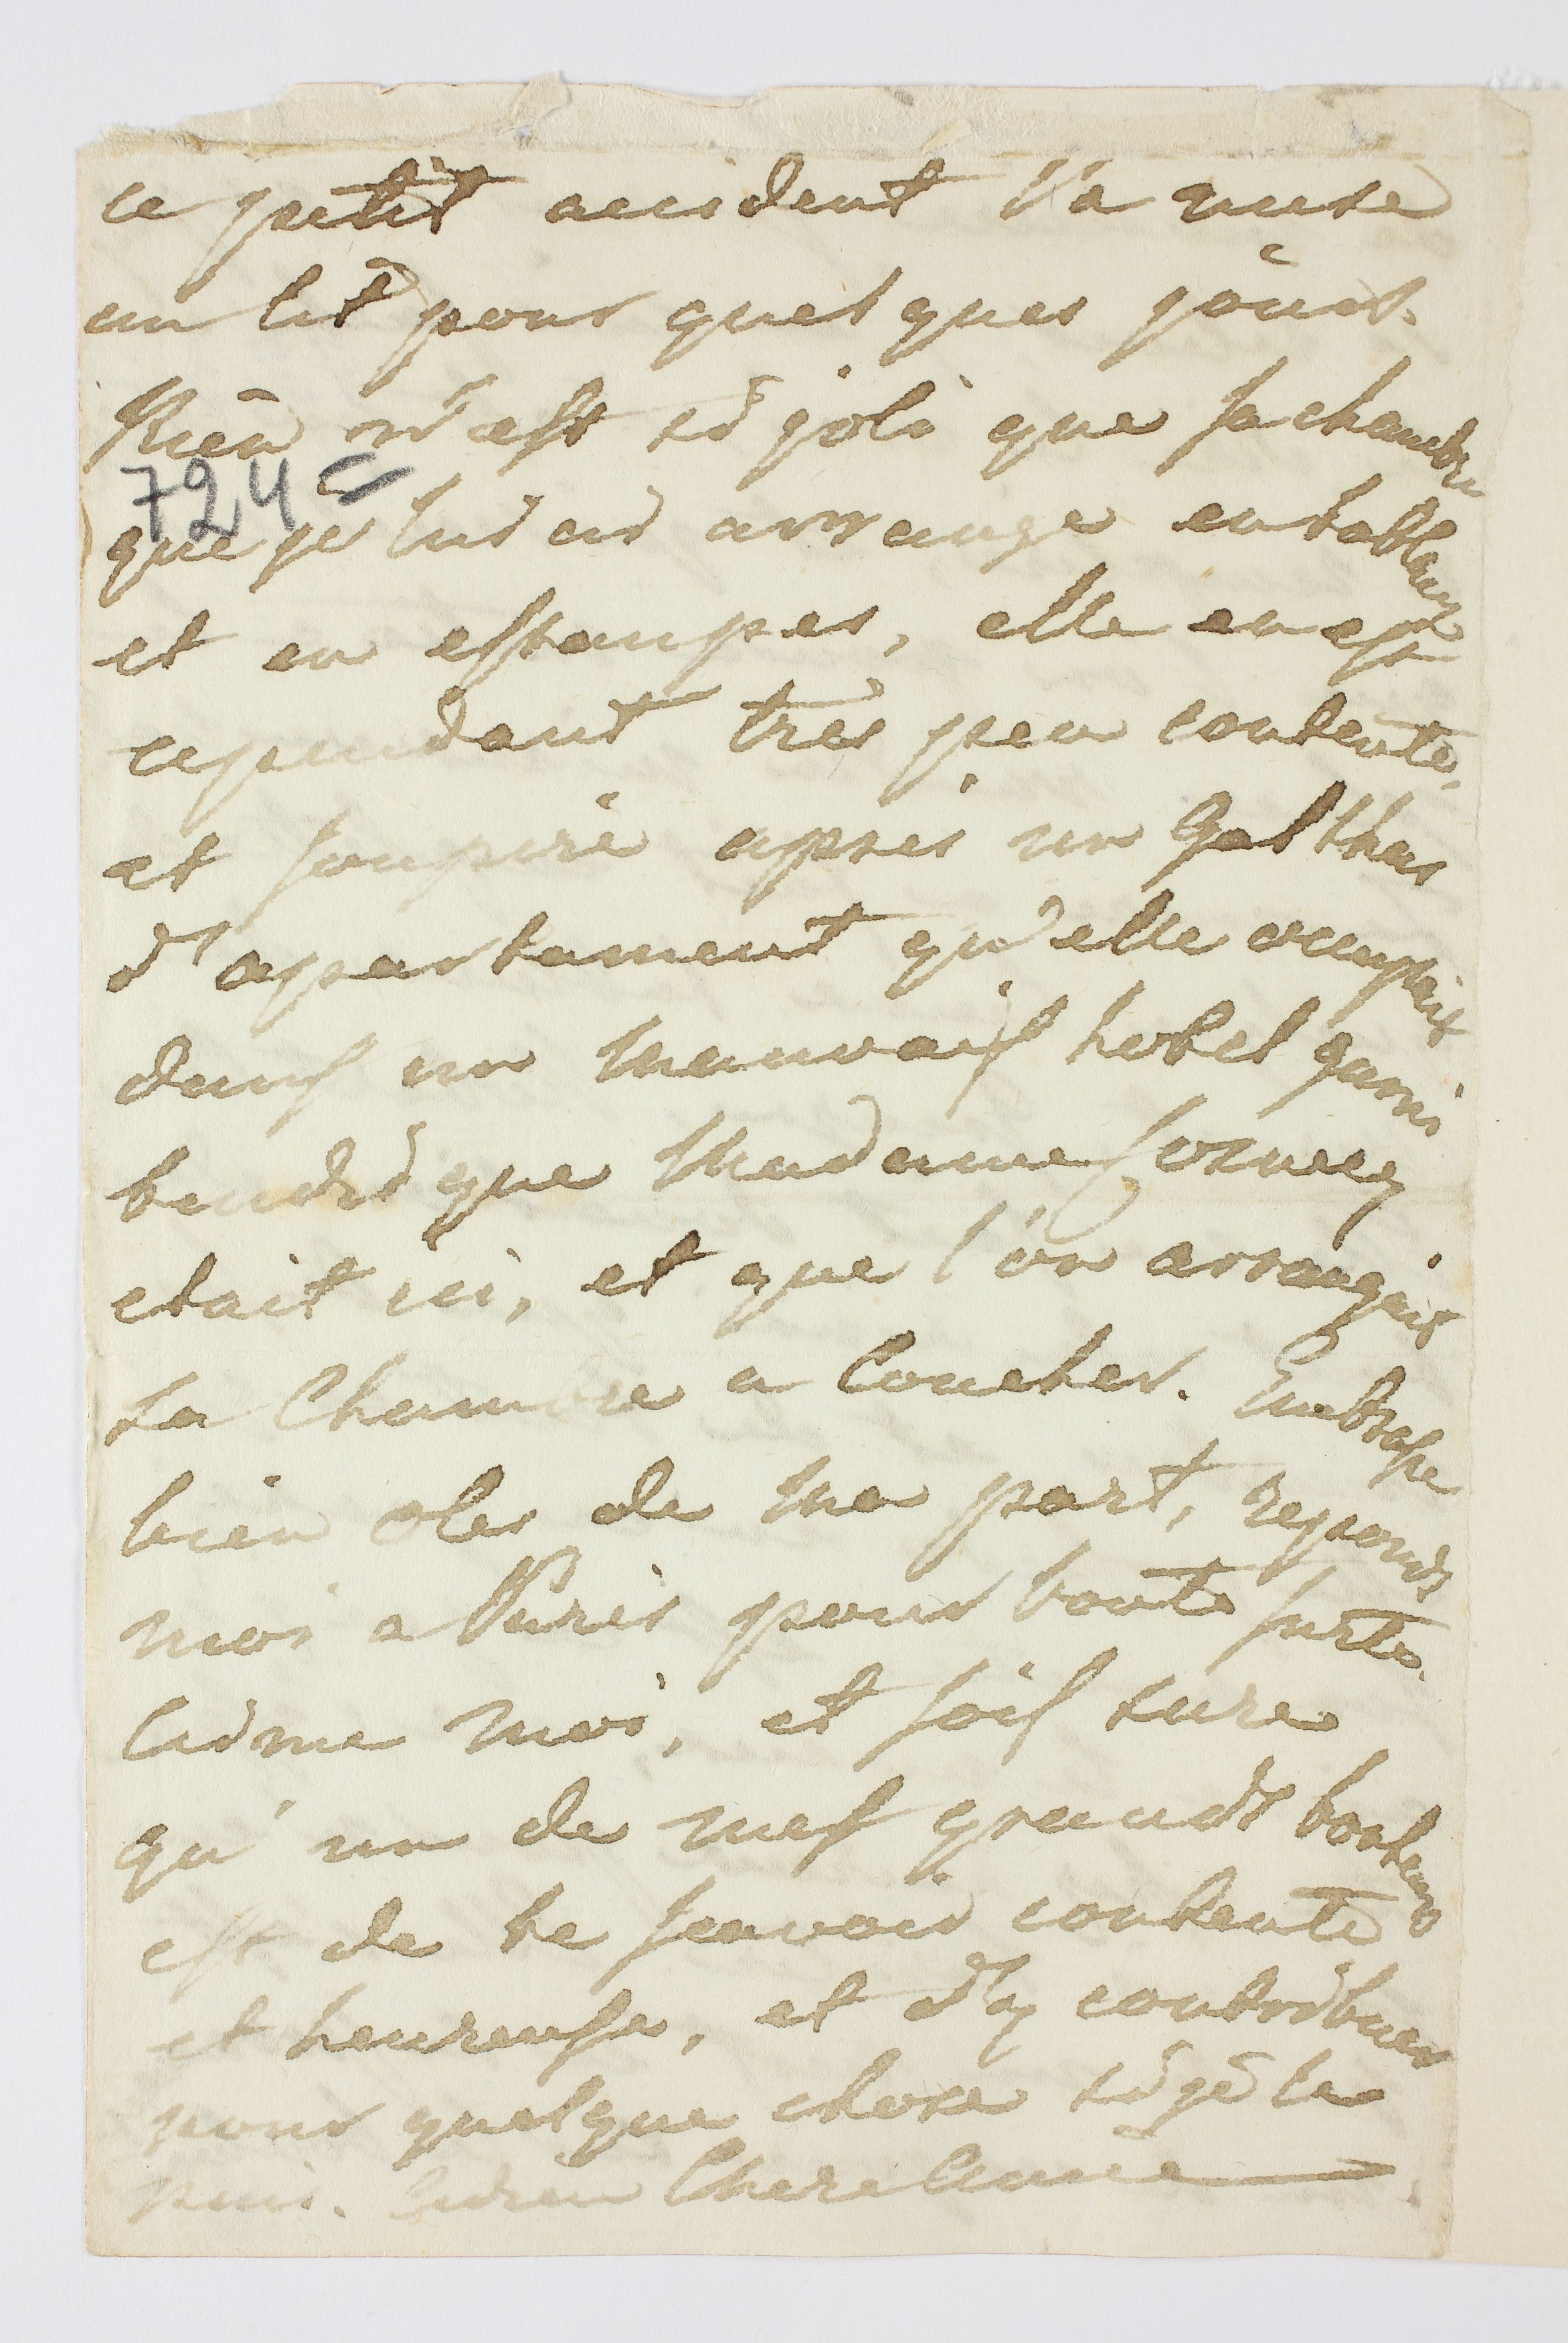 ce petit accident l'a mise
au lit pour quelques jours.
Rien n'est si joli que sa chambre
724
que je lui ai arrange en tableaux
et en estampes, elle en est
cependant très peu contente,
et soupire apres un
d'apartament qu'elle occupait
dans un mauvais hotel garni
tendis que Madame
etait ici, et que l'on arrangait
sa Chambre a Coucher. Embrasse
bien Oles de ma part, reponds
moi a Paris pour toute surte.
Aime moi, et sois sure
qu'un de mes grands bonheurs
est de te scavoir contente
et heureuse, et d'y contribuer
pour quelque chose si je le
puis. Adieu Chere Amie